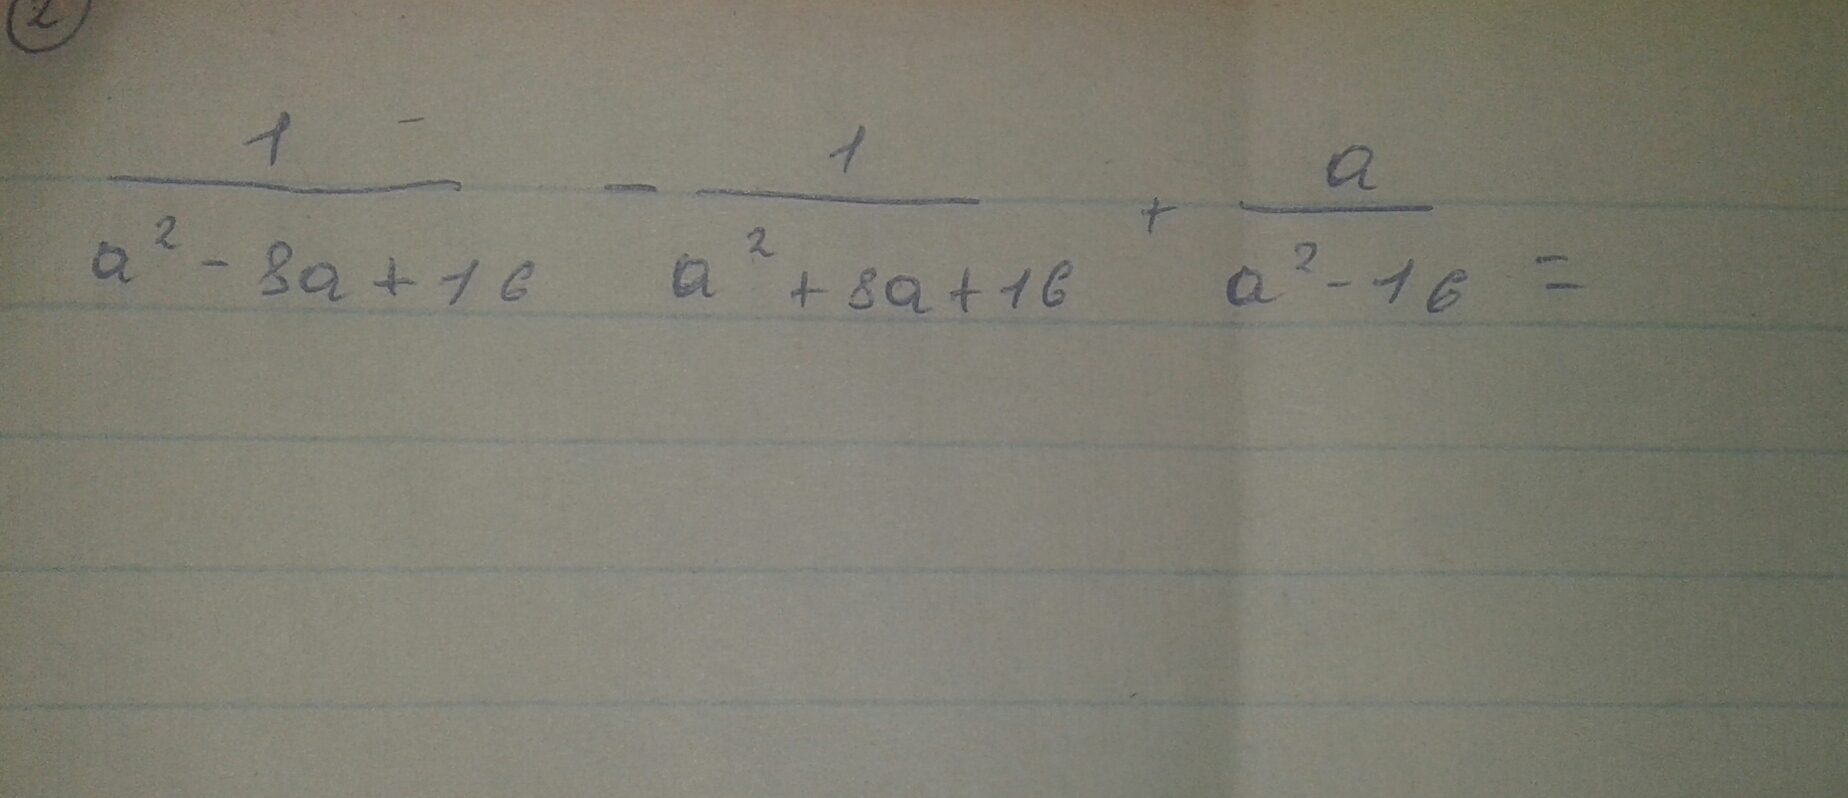 2
1 / (a² - 8a + 16) - 1 / (a² + 8a + 16) + a / (a² - 16) =